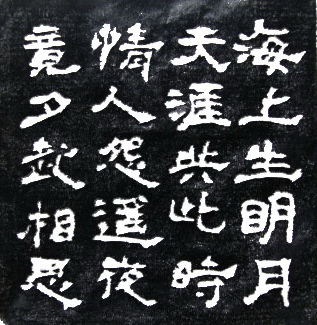 海上生明月
天涯共此時
情人怨遥夜
竟夕起相思